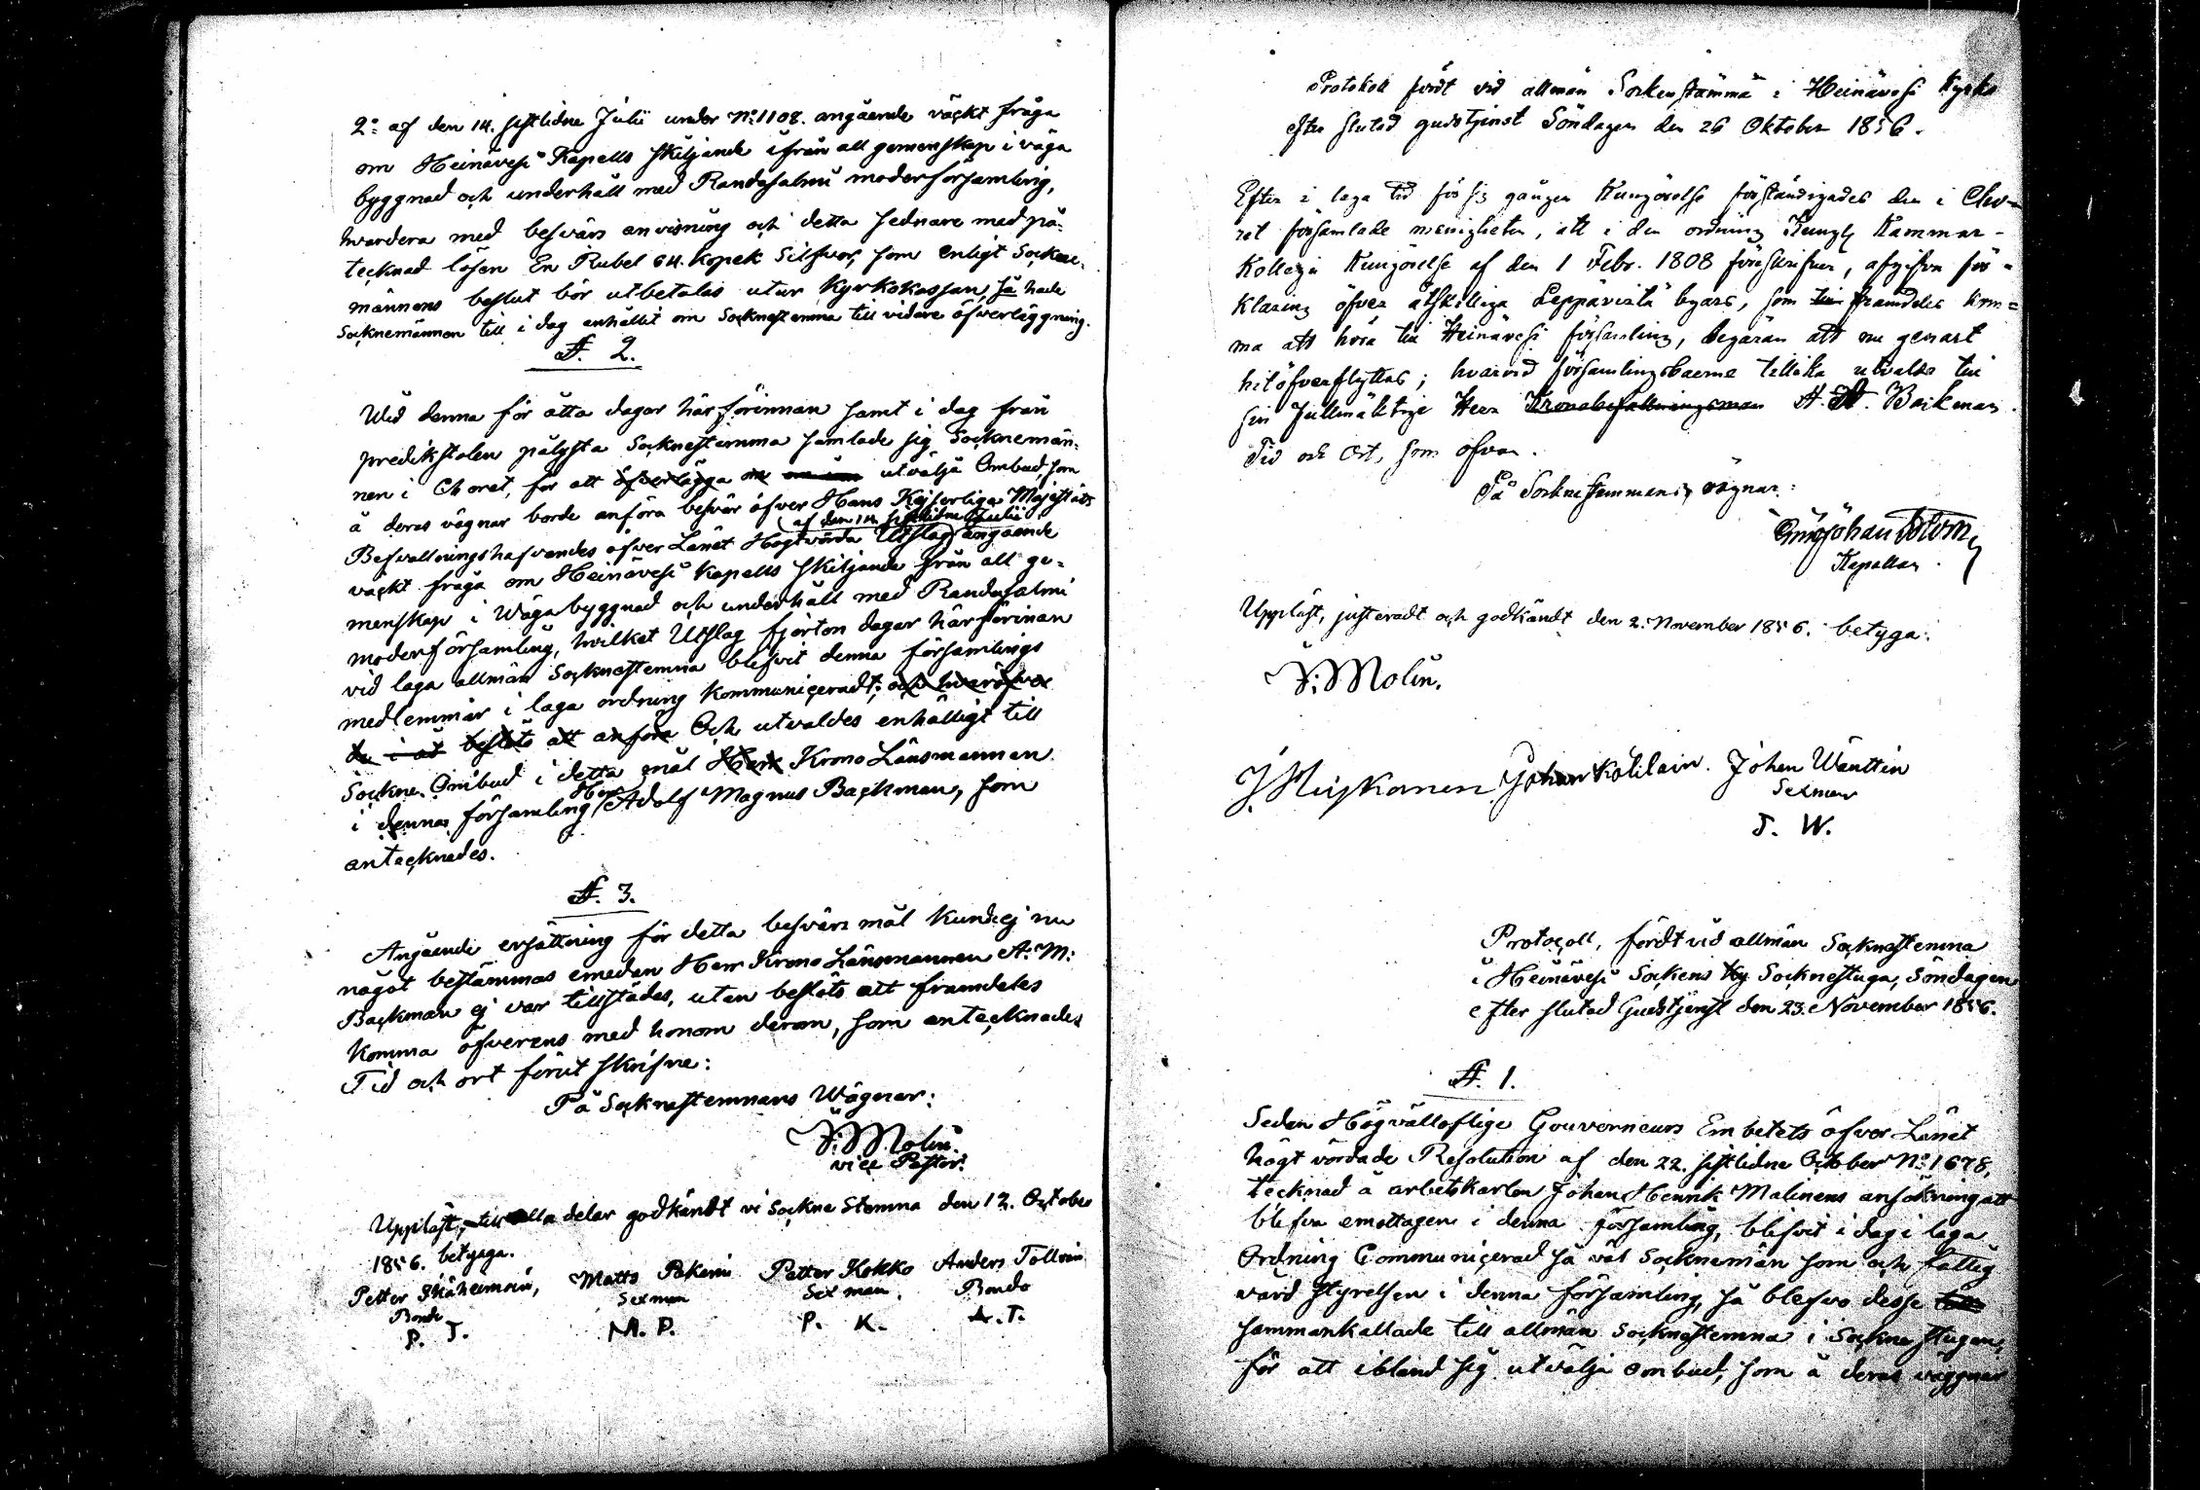 2:o af den 14. sistlidne Julii under No: 1108. angående väckt fråga
om Heinävesi Kapells skiljande ifrån all gemenskap i väga
byggnad och underhåll med Randasalmi moderförsamling,
hvardera med besvärs anvisning och i detta sednare med på-
tecknad lösen En Rubel 64. Kopek Silfver, som enligt Socken-
männens beslut bör utbetalas utur Kyrkokassan, så hade
Socknemännen till i dag anhållit om Socknestemma till vidare öfverläggning.
§. 2.
Wid denna för åtta dagar härförinnan samt i dag från
predikstolen pålysta Socknestemma samlade sig Socknemän-
nen i Choret, för att öfverlägga om utvälja Ombud, som
å deras vägnar borde anföra besvär öfver Hans Kejserliga Majestäts
af den 14. sistlidne Julii
Befallningshafvandes öfver Länet Högtvörda Utslag angående
väckt fråga om Heinävesi Kapells skiljande från all ge-
menskap i Wäga byggnad och underhåll med Randasalmi
moderförsamling, hvilket Utslag fjorton dagar härförinnan
vid laga allmän Socknestemma blifvit denna församlings
medlemmar i laga ordning kommuniceradt; och hvaröfver
beslöts att anföra Och utvaldes enhälligt till
Sockne Ombud i detta mål Herr Krono Länsmannen
Herr
i denna församling Adolf Magnus Backman, som
antecknades.
§. 3.
Angående ersättning för detta besvärs mål kunde ej nu
något bestämmas emedan Herr Krono Länsmannen A: M:
Backman ej var tillstädes, utan beslöts att framdeles
komma öfverens med honom derom, som antecknades
Tid och ort förut skrifne:
På Socknestemmans Wägnar:
F: Molin.
vice Pastor.
Uppläst, till alla delar godkändt vi Sockne Stemma den 12. October
1856. betyga.
Petter Matts Pakarin Petter Kokko Anders Tolvain
Bonde Sexman Sexman. Bonde
P. T. M. P. P. K. A. T.
Protokoll fördt vid allmän Sockenstämma i Heinävesi Kyrka
efter slutad gudstjenst Söndagen den 26 Oktober 1856.
Efter i laga tid för sig gången Kungörelse förständigades den i Cho-
ret församlade menigheten, att i den ordning Kungl Kammar-
Kollegii Kungörelse af den 1 Febr. 1808 föreskrifver, afgifva för-
klaring öfver åtskilliga Leppävirta byars, som till framdeles kom-
ma att höra till Heinävesi församling, begäran att nu genast
hitöfverflyttas; hvarvid församlingsboerne tillika utvalde till
sin fullmäktige Herr Kronobefallningsman A. M. Backman.
Tid och Ort, som ofvan.
På Sockne stemmans vägnar:
Johan
Kapellan.
Uppläst, justeradt och godkändt den 2. November 1856. betyga:
F: Molin.
J Huskonen Johan Kolilain. Johan Wänttin
Sexman
J. W.
Protocoll, fördt vid allmän Socknestemma
i Heinävesi Sockens Ky Socknestuga, Söndagen
efter slutad Gudstjenst den 23. November 1856.
§. 1.
Sedan Högvälloflige Gouverneurs Embetets öfver Länet
högt vördade Resolution af den 22. sistlidne October No: 1678,
tecknad å arbetskarlen Johan Henrik Malinens ansökning att
blifva emottagen i denna församling, blifvit i dag i laga
Ordning Communicerad så väl Socknemän som och fattig
vård styrelsen i denna församling, så blefvo desse
sammankallade till allmän Socknestemma i Sockne stugan,
för att ibland sig utvälja ombud, som å deras väggnar